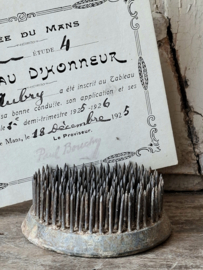 ÉE DU MANS
ÉTUDE 4
AU D'HONNEUR
Aubry a été inscrit au Tableau
sa bonne conduite, son application et ses
demi-trimestre 1925-1926
Mans, le 18 Décembre 1925
Le Proviseur.